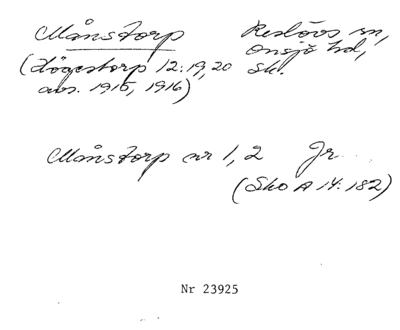 Månstorp Reslövs sn,
Onsjö hd,
(Högestorp 12:19,20 Sk.
avs. 1915, 1916)
Månstorp nr 1, 2 Jr
(Sko A 14:182)
Nr 23925